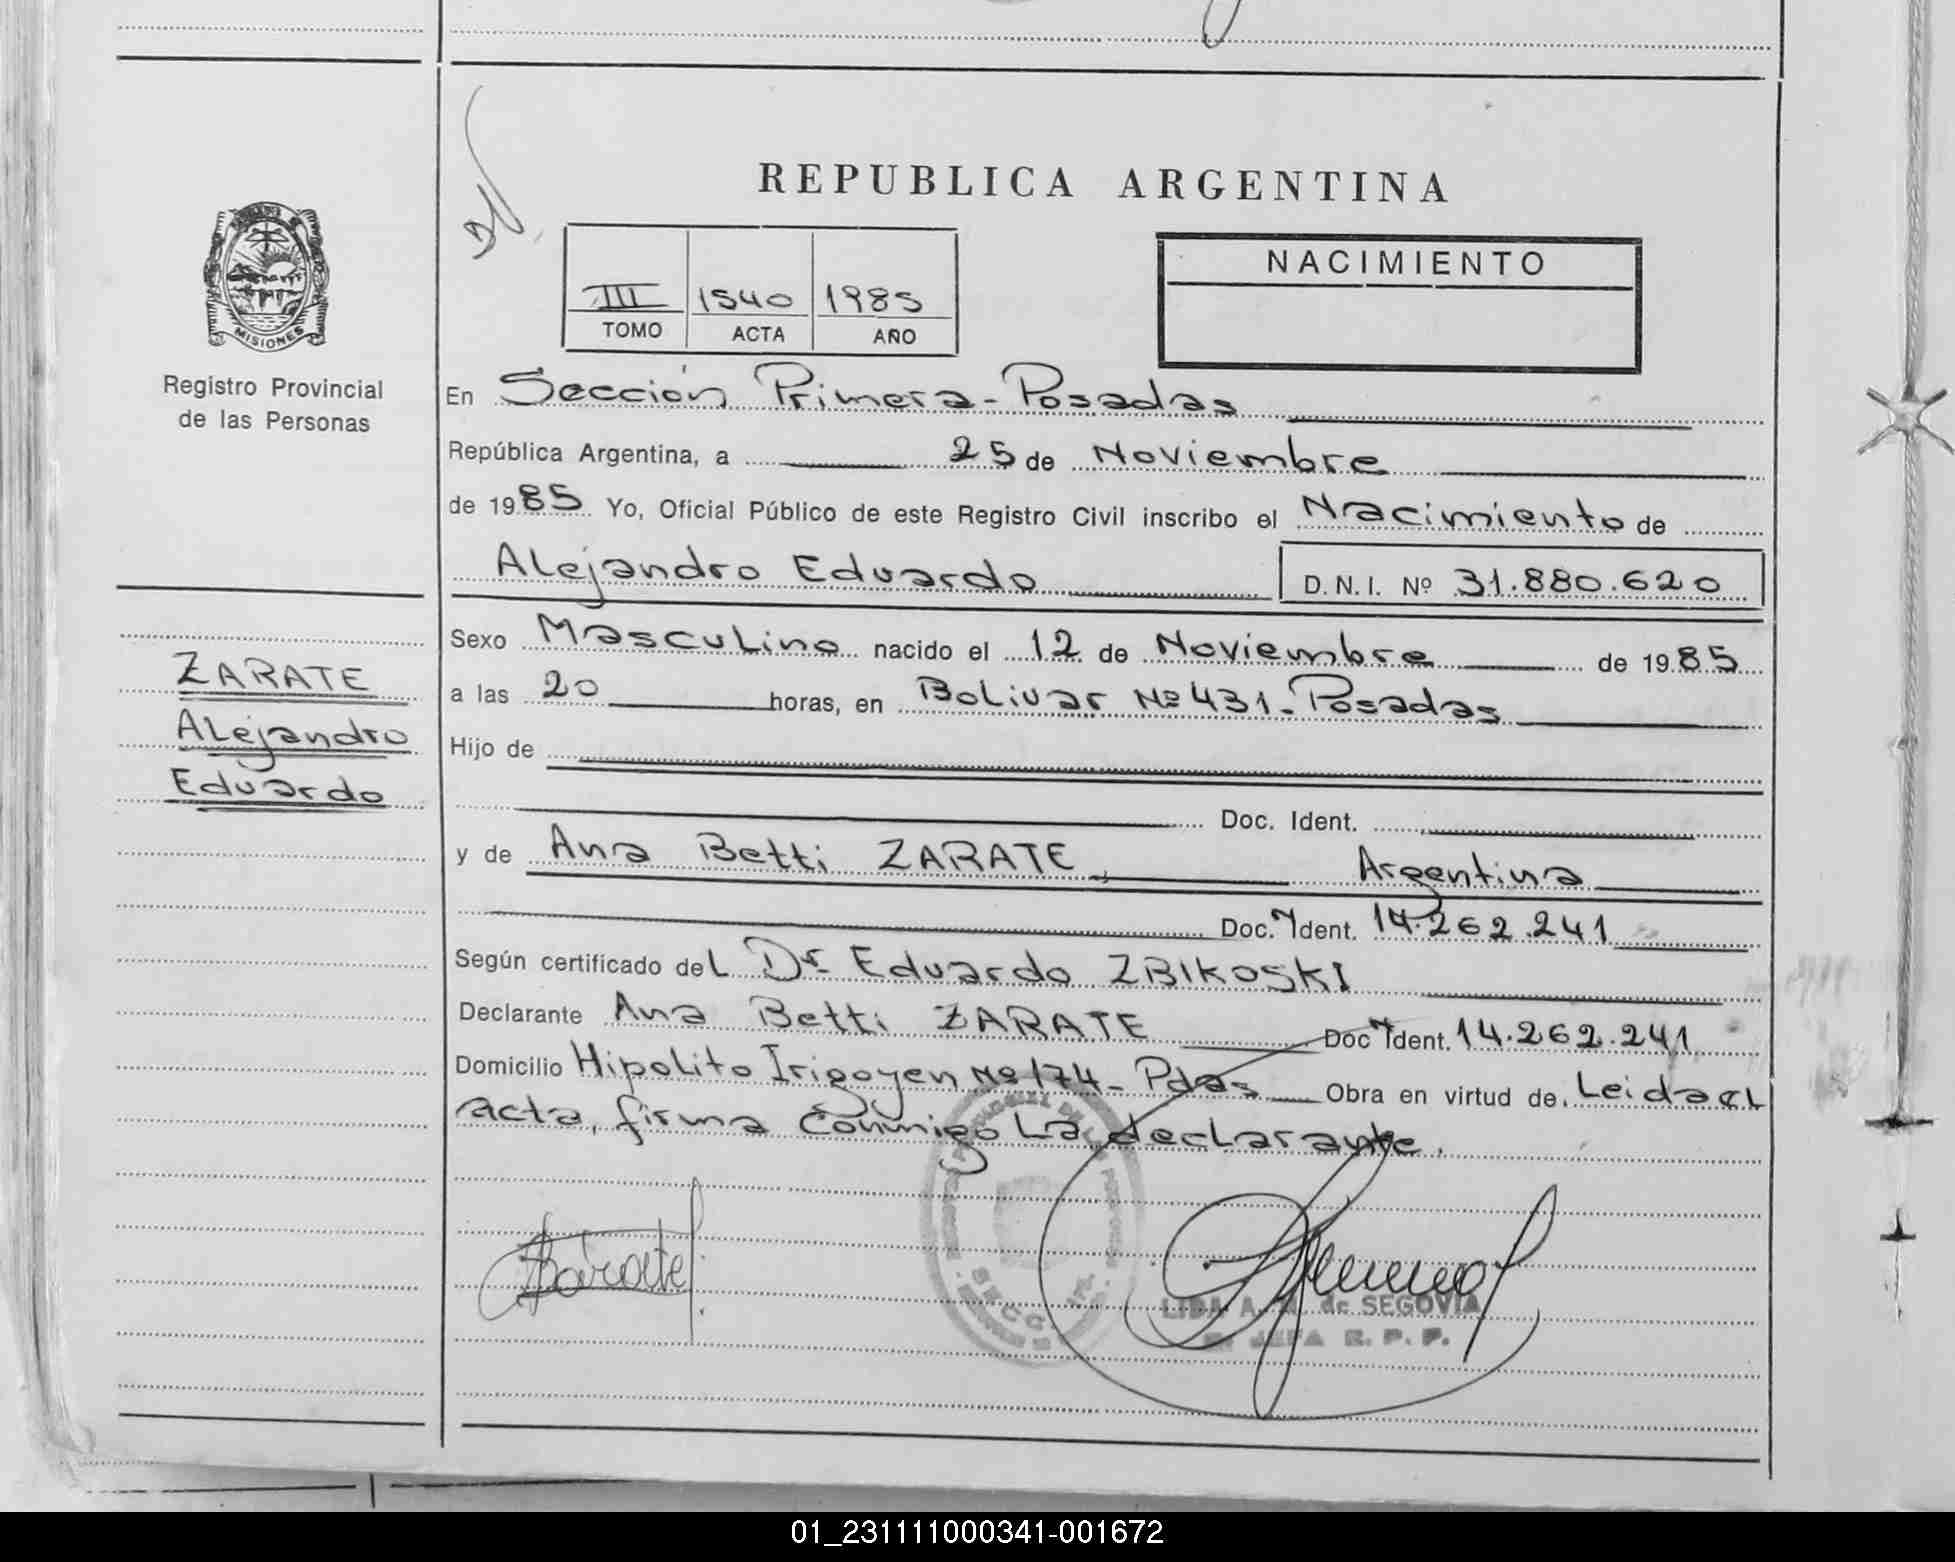 REPUBLICA ARGENTINA
MISIONES
Registro Provincial
de las Personas
III 1540 1985
TOMO ACTA AÑO
NACIMIENTO
En Sección Primera - Posadas
República Argentina, a 25 de Noviembre
de 1985 Yo, Oficial Público de este Registro Civil inscribo el Nacimiento de
Alejandro Eduardo D.N.I. Nº 31.880.620
ZARATE
Alejandro
Eduardo
Sexo Masculino nacido el 12 de Noviembre de 1985
a las 20 horas, en Bolivar Nº 431 - Posadas
Hijo de
Doc. Ident.
y de Ana Betti ZARATE, Argentina
Doc. Ident. 14.262.241
Según certificado del Dr. Eduardo ZBIKOSKI
Declarante Ana Betti ZARATE Doc Ident. 14.262.241
Domicilio Hipolito Irigoyen Nº 174 - Pdas Obra en virtud de. Leida el
acta, firma conmigo La declarante.
SECC
LIDA A. de SEGOVIA
JEFA R. P. P.
01_231111000341-001672